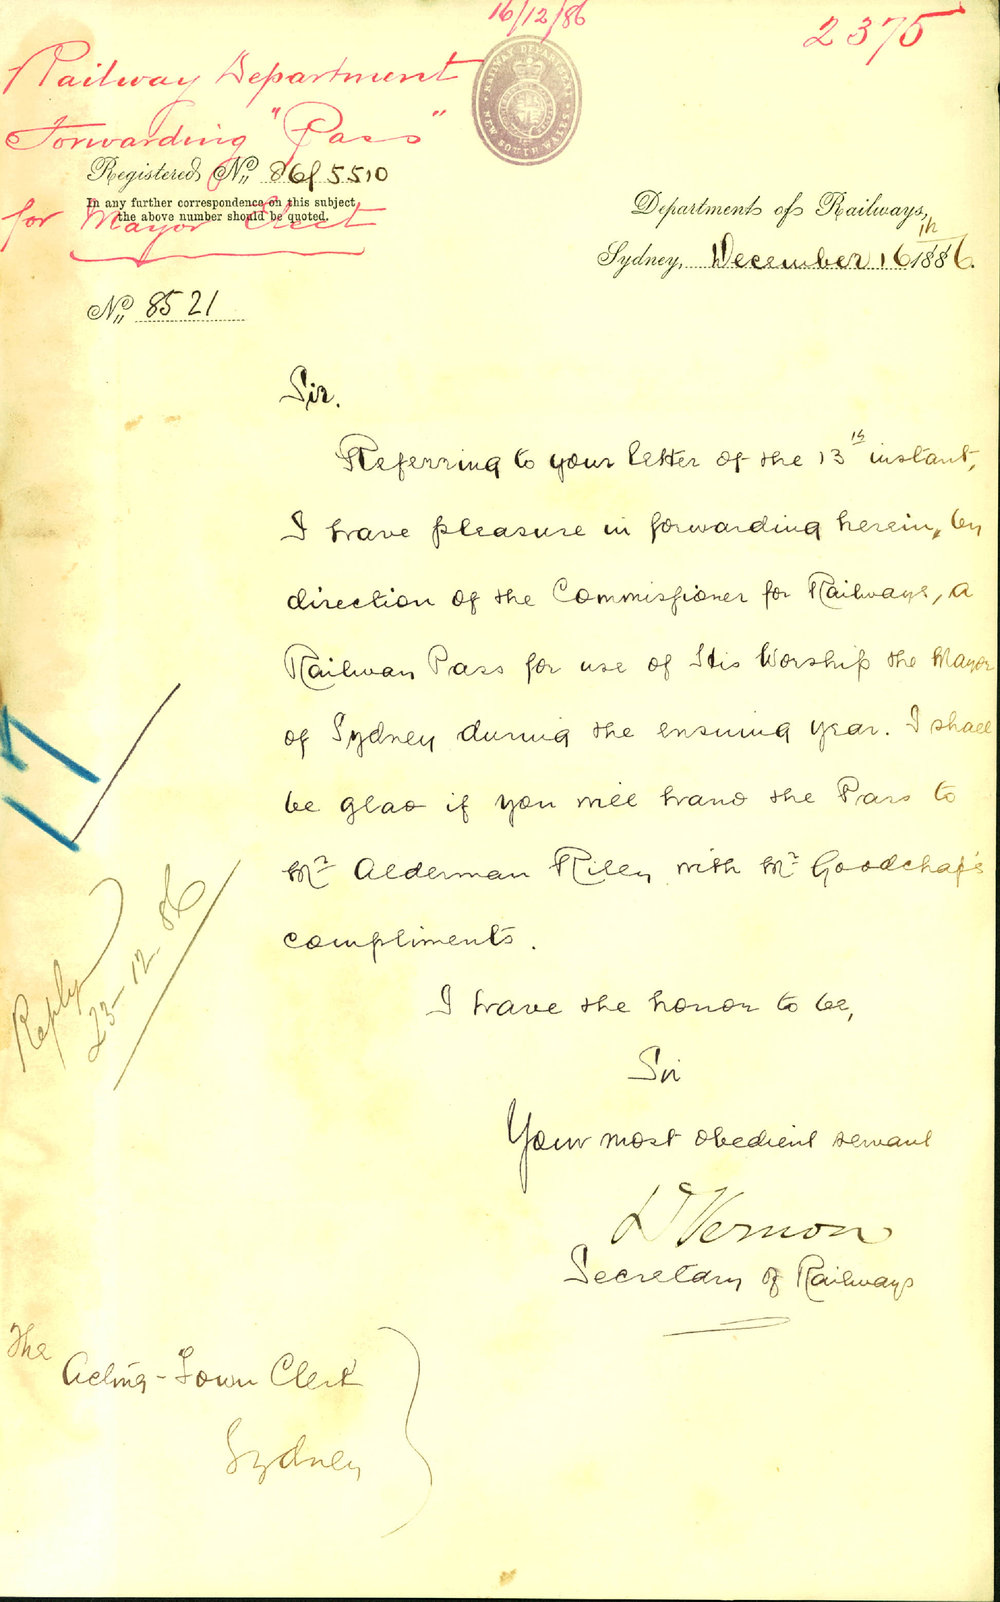 16/12/86
2375
Railway Department
Forwarding "Pass"
for Mayor Elect
RAILWAY DEPARTMENT
NEW SOUTH WALES
Registered No. 86/5510
In any further correspondence on this subject,
the above number should be quoted.
Department of Railways,
Sydney, December 16th 1886.
No. 8521
Sir.
Referring to your letter of the 13th instant,
I have pleasure in forwarding herein, by
direction of the Commissioner for Railways, a
Railway Pass for use of His Worship the Mayor
of Sydney during the ensuing year. I shall
be glad if you will hand the Pass to
Mr Alderman Riley with Mr Goodchap's
compliments.
I have the honor to be,
Sir
Your most obedient servant
D Vernon
Secretary of Railways
17
Reply
23-12-86
The
Acting-Town Clerk
Sydney